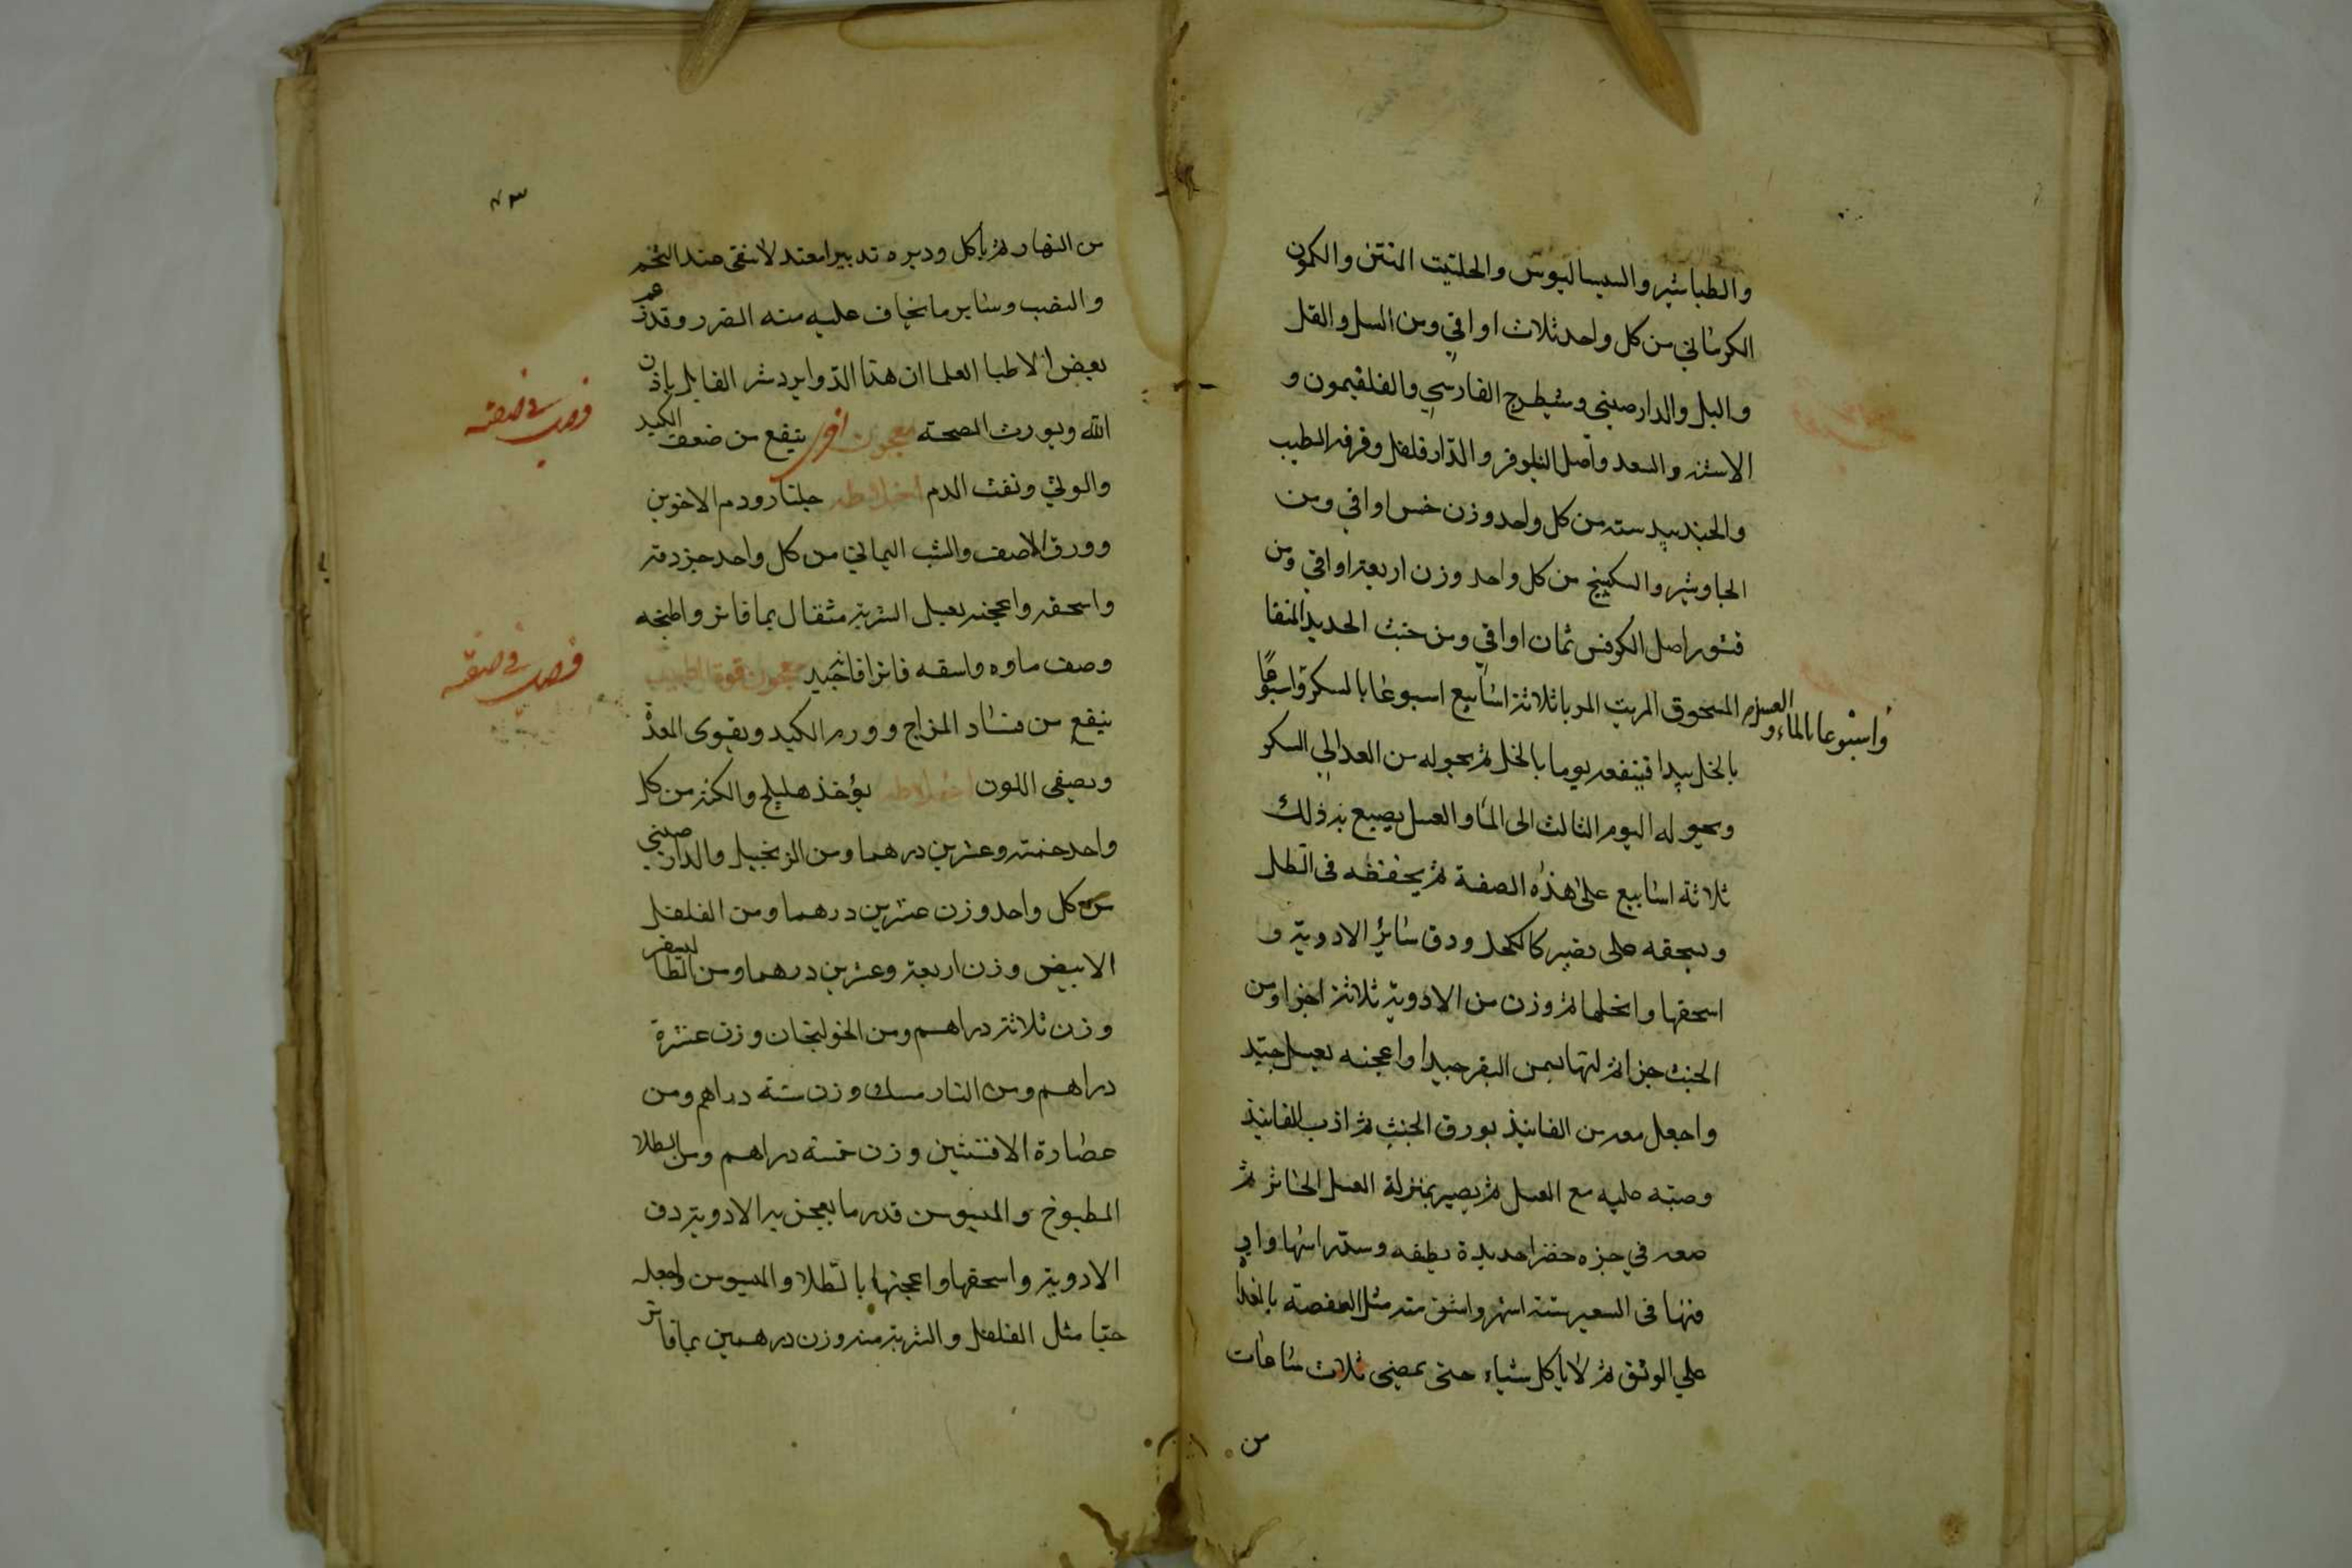 والطباشير والسيساليوس والحلتيت المنتن والكمون
الكرماني من كل واحد ثلاث اواقي ومن السل والقل
والبل والدارصيني وشيطرج الفارسي والفلفيمون و
الاشنه والسعد واصل النيلوفر والدارفلفل وقرفه الطيب
والجندبيدسته من كل واحد وزن خمس اواقي ومن
الجاوشير والسكبينج من كل واحد وزن اربعة اواقي ومن
قشور اصل الكرفس ثمان اواقي ومن خبث الحديد المنقا
المسحوق المربب المربا ثلاثة اسابيع اسبوعا بالسكر واسبوعا
واسبوعا بالماء والعسل
بالخل يبدا فينقعه يوما بالخل ثم يحوله من الغد الي السكر
ويحوله اليوم الثالث الى الما والعسل يصيع به ذلك
ثلاثة اسابيع على هذه الصفة ثم يحففه فى الظل
ويسحقه حتى يصير كالكحل ودق سائر الادوية و
اسحقها وانخلها ثم وزن من الادوية ثلاثة اجزا ومن
الخبث جزا ثم لتها بسمن البقر جيدا واعجنه بعسل جيد
واجعل معه من الفانيذ بورق الخبث ثم اذب الفانيذ
وصبه عليه مع العسل ثم يصير بمنزلة العسل الخاثر ثم
ضعه في جره خضرا جديدة نظيفه وسد راسها واد
فنها فى الشعير ستة اشهر واسق منه مثل العفصة بالغدا
علي الريق ثم لا ياكل شياء حتى يمضي ثلاث ساعات
من
٧٣
من النهار ثم ياكل ودبره تدبيرا معتدلا يتقى عند التخم
والنصب وساير ما يخاف عليه منه الضرر وقد زعم
بعض الاطبا العلما ان هذا الدوا يرد شر القابل باذن
الله ويورث الصحة معجون اخر ينفع من ضعف الكبد
والوثي ونفث الدم اخلاطه جلنار ودم الاخوين
وورق الاصف والشب اليماني من كل واحد جزء دقه
واسحقه واعجنه بعسل الشربة مثقال بما فاتر واطبخه
وصف ماوه واسقه فاترا فانه جيد معجون قوة الطبيب
ينفع من فساد المزاج وورم الكبد ويقوى المعدة
ويصفى اللون اخلاطه يؤخذ هليلج والكندر من كل
واحد خمسة وعشرين درهما ومن الزنجبيل والدارصيني
من كل واحد وزن عشرين درهما ومن الفلفل
الابيض وزن اربعة وعشرين درهما ومن الطاليسفر
وزن ثلاثة دراهم ومن الخولنجان وزن عشرة
دراهم ومن النارمسك وزن ستة دراهم ومن
عصارة الافسنتين وزن خمسة دراهم ومن الطلا
المطبوخ والميسوسن قدر ما يعجن به الادوية دق
الادوية واسحقها واعجنها بالطلا والميسوسن واجعله
حبا مثل الفلفل والشربة منه وزن درهمين بما فاتر